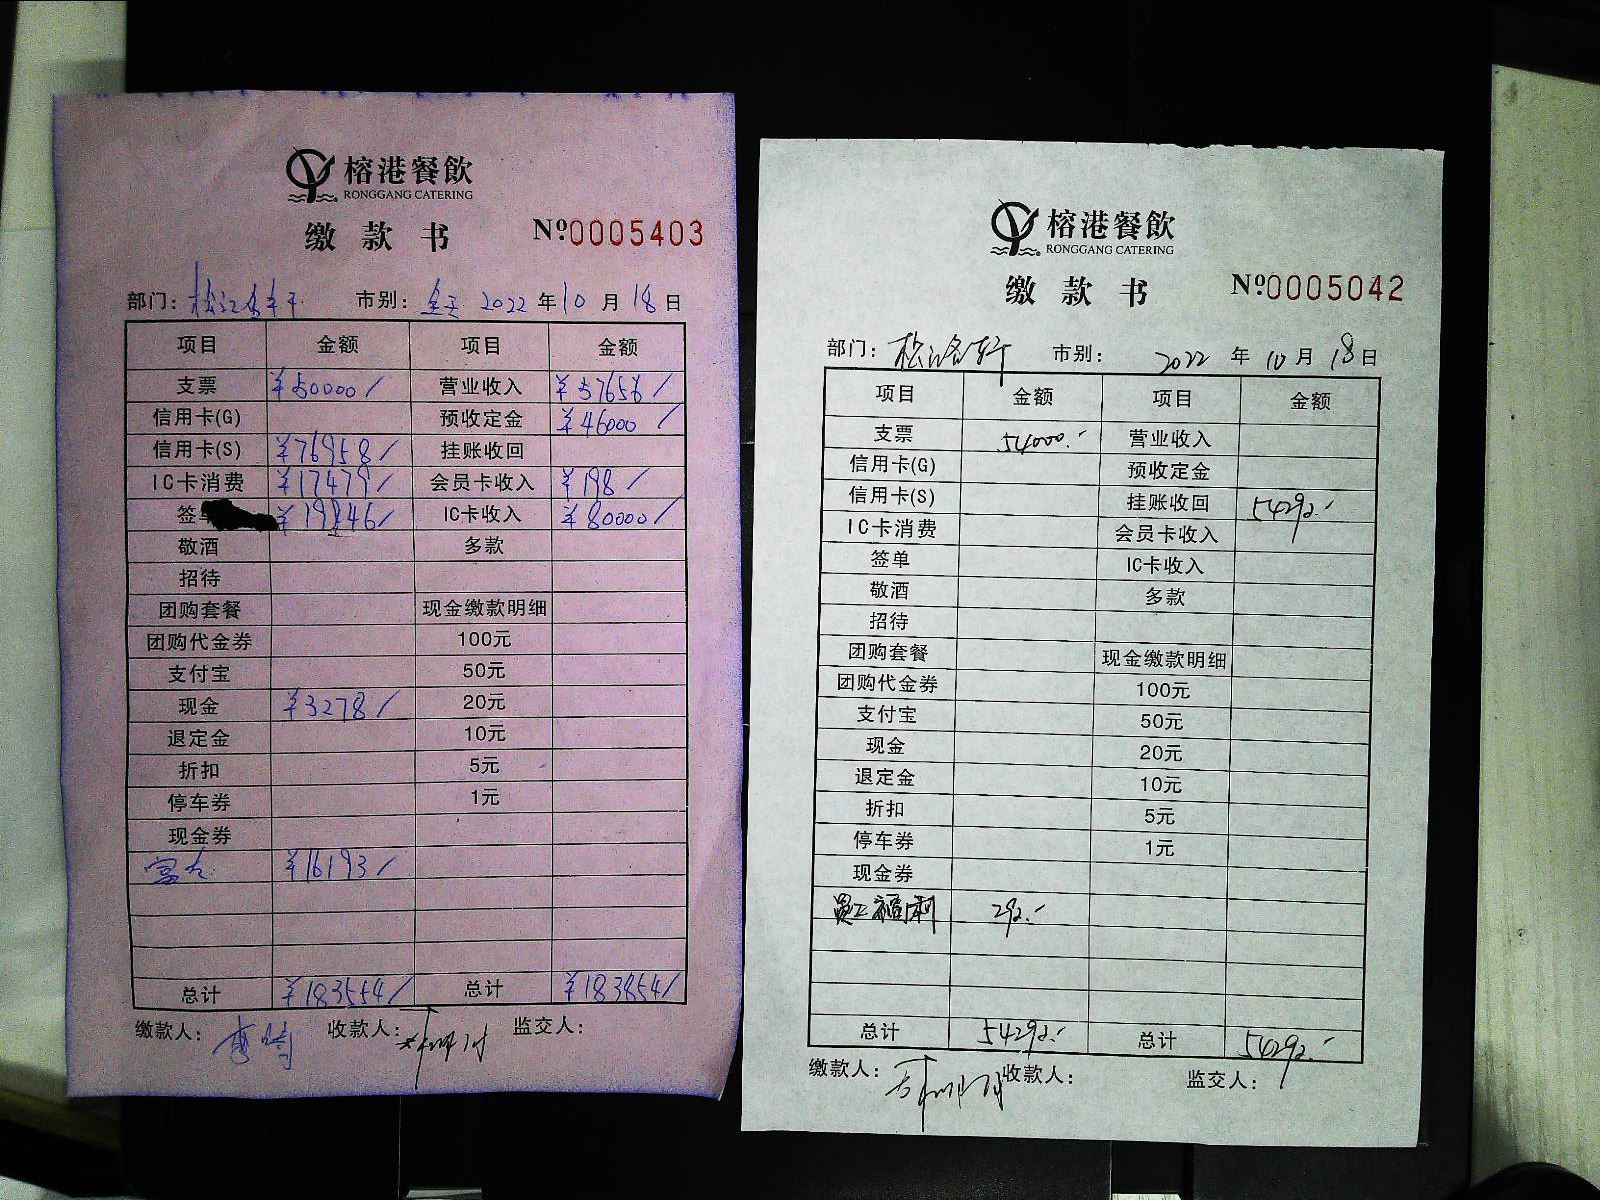 榕港餐飲
RONGGANG CATERING
缴款书 Nº0005403
部门: 市别: 全天 2022年10月18日
项目 金额 项目 金额
支票 ¥50000/ 营业收入 ¥57656/
信用卡(G) 预收定金 ¥46000/
信用卡(S) ¥76958/ 挂账收回
IC卡消费 ¥17479/ 会员卡收入 ¥198/
签单 IC卡收入 ¥80000/
敬酒 多款
招待
团购套餐 现金缴款明细
团购代金券 100元
支付宝 50元
现金 ¥3278/ 20元
退定金 10元
折扣 5元
停车券 1元
现金券
¥16193/
总计 总计 ¥183854/
缴款人: 收款人: 监交人:
榕港餐飲
RONGGANG CATERING
缴款书 Nº0005042
部门: 市别: 2022年10月18日
项目 金额 项目 金额
支票 54000.- 营业收入
信用卡(G) 预收定金
信用卡(S) 挂账收回 54292.-
IC卡消费 会员卡收入
签单 IC卡收入
敬酒 多款
招待
团购套餐 现金缴款明细
团购代金券 100元
支付宝 50元
现金 20元
退定金 10元
折扣 5元
停车券 1元
现金券
员工福利 292.-
总计 54292.- 总计 54292.-
缴款人: 收款人: 监交人: